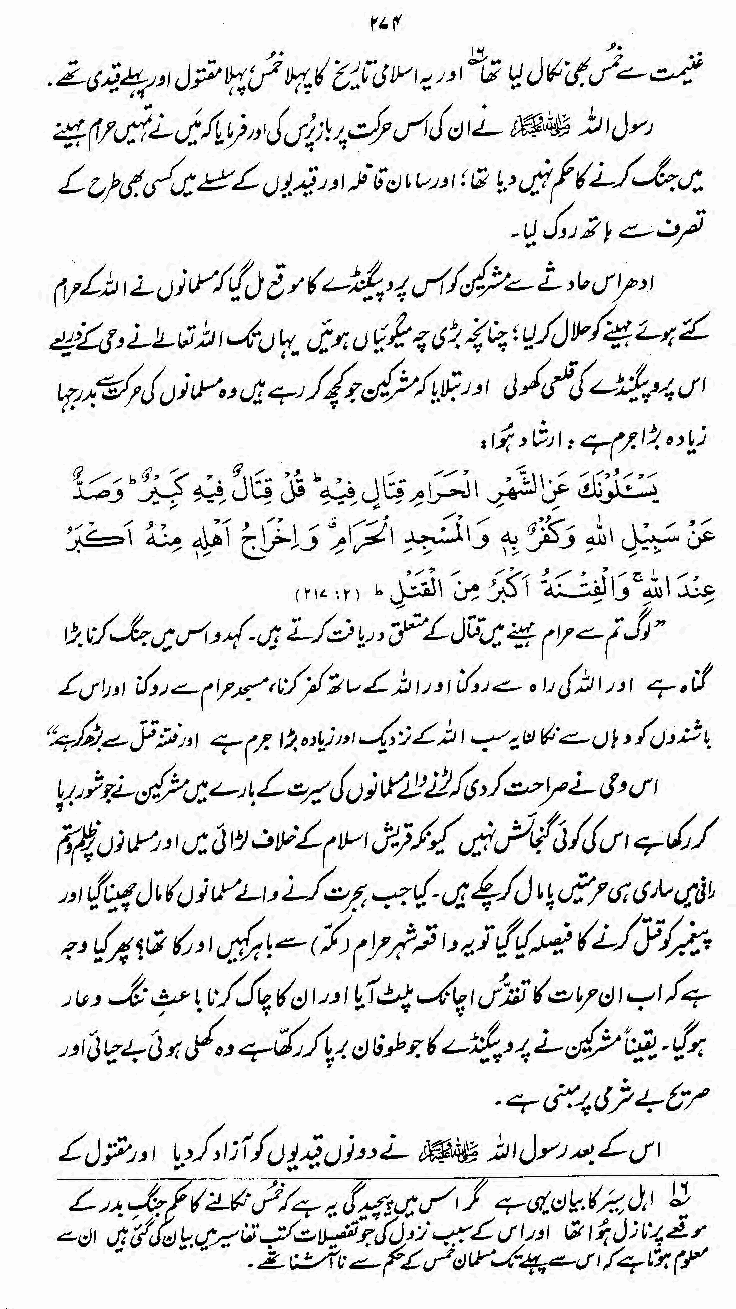 ۲۷۴
غنیمت سے خُمس بھی نکال لیا تھا۱۶ اور یہ اسلامی تاریخ کا پہلا خُمس، پہلا مقتول اور پہلے قیدی تھے۔
رسول اللہ ﷺ نے ان کی اس حرکت پر باز پرس کی اور فرمایا کہ میں نے تمہیں حرام مہینے
میں جنگ کرنے کا حکم نہیں دیا تھا؛ اور سامان قافلہ اور قیدیوں کے سلسلے میں کسی بھی طرح کے
تصرف سے ہاتھ روک لیا۔
ادھر اس حادثے سے مشرکین کو اس پروپیگنڈے کا موقع مل گیا کہ مسلمانوں نے اللہ کے حرام
کئے ہوئے مہینے کو حلال کر لیا؛ چنانچہ بڑی چہ میگوئیاں ہوئیں یہاں تک اللہ تعالےٰ نے وحی کے ذریعے
اس پروپیگنڈے کی قلعی کھولی اور بتلایا کہ مشرکین جو کچھ کر رہے ہیں وہ مسلمانوں کی حرکت سے بدرجہا
زیادہ بڑا جرم ہے : ارشاد ہُوا:
يَسْـَٔلُوْنَكَ عَنِ الشَّهْرِ الْحَرَامِ قِتَالٍ فِيْهِ ؕ قُلْ قِتَالٌ فِيْهِ كَبِيْرٌ ؕ وَصَدٌّ
عَنْ سَبِيْلِ اللهِ وَكُفْرٌۢ بِهٖ وَالْمَسْجِدِ الْحَرَامِ ۗ وَاِخْرَاجُ اَهْلِهٖ مِنْهُ اَكْبَرُ
عِنْدَ اللهِ ۚ وَالْفِتْنَةُ اَكْبَرُ مِنَ الْقَتْلِ ط (۲: ۲۱۷)
”لوگ تم سے حرام مہینے میں قتال کے متعلق دریافت کرتے ہیں۔ کہدو اس میں جنگ کرنا بڑا
گناہ ہے اور اللہ کی راہ سے روکنا اور اللہ کے ساتھ کفر کرنا، مسجد حرام سے روکنا اور اس کے
باشندوں کو وہاں سے نکالنا یہ سب اللہ کے نزدیک اور زیادہ بڑا جرم ہے اور فتنہ قتل سے بڑھ کر ہے“
اس وحی نے صراحت کر دی کہ لڑنے والے مسلمانوں کی سیرت کے بارے میں مشرکین نے جو شور برپا
کر رکھا ہے اس کی کوئی گنجائش نہیں کیونکہ قریش اسلام کے خلاف لڑائی میں اور مسلمانوں پر ظلم و ستم
رانی میں ساری ہی حرمتیں پامال کر چکے ہیں۔ کیا جب ہجرت کرنے والے مسلمانوں کا مال چھینا گیا اور
پیغمبر کو قتل کرنے کا فیصلہ کیا گیا تو یہ واقعہ شہر حرام (مکہ) سے باہر کہیں اور کا تھا؟ پھر کیا وجہ
ہے کہ اب ان حرمات کا تقدّس اچانک پلٹ آیا اور ان کا چاک کرنا باعثِ ننگ و عار
ہو گیا۔ یقیناً مشرکین نے پروپیگنڈے کا جو طوفان برپا کر رکھّا ہے وہ کھلی ہوئی بے حیائی اور
صریح بے شرمی پر مبنی ہے۔
اس کے بعد رسول اللہ ﷺ نے دونوں قیدیوں کو آزاد کر دیا اور مقتول کے
۱۶ اہل سِیَر کا بیان یہی ہے مگر اس میں پیچیدگی یہ ہے کہ خُمس نکالنے کا حکم جنگ بدر کے
موقعے پر نازل ہُوا تھا اور اس کے سبب نزول کی جو تفصیلات کتب تفاسیر میں بیان کی گئی ہیں ان سے
معلوم ہوتا ہے کہ اس سے پہلے تک مسلمان خمس کے حکم سے نا آشنا تھے۔